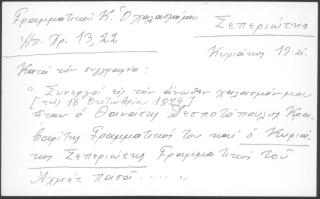 Γραμματικού Κ. Ο χαλασμόμου
Ηπ. Χρ. 13, 22
Σεπεριώτης
Κυριάκης 19 αἰ
Κατά τόν συγγραφέα:
"Συνεργοί εἰς τόν ἄνωθεν χαλασμόν μου
[τήν 16 Ὀκτωβρίου 1824]
ἦταν ὁ Θανάσης Δεσποτόπουλος
Γραμματικός του καί ὁ Κυριά-
κης Σεπεριώτης Γραμματικός τοῦ
Ἀχμέτ Πασᾶ.....,,